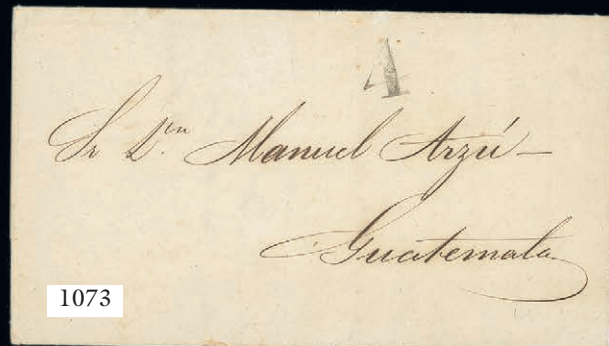 4
Sr Dn. Manuel Arzú —
Guatemala
1073